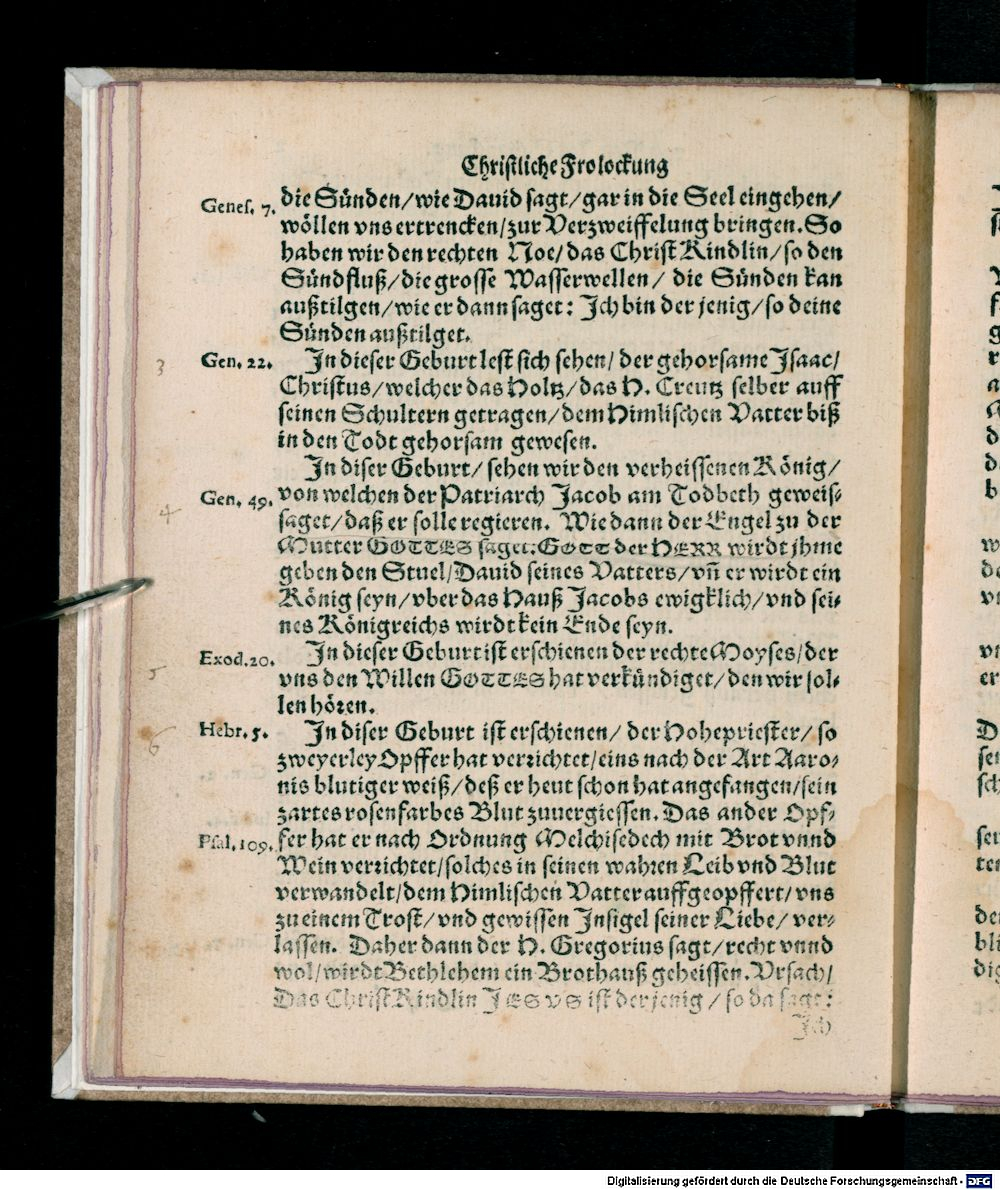 Christliche Frolockung
Genes. 7. die Sünden/wie Dauid sagt/gar in die Seel eingehen/
wöllen vns ertrencken/zur Verzweiffelung bringen. So
haben wir den rechten Noe/das Christ Kindlin/so den
Sündfluß/die grosse Wasserwellen/ die Sünden kan
außtilgen/wie er dann saget: Ich bin der jenig/so deine
Sünden außtilget.
3 Gen. 22. In dieser Geburt lest sich sehen/ der gehorsame Isaac/
Christus/welcher das Holtz/das H. Creutz selber auff
seinen Schultern getragen/dem Himlischen Vatter biß
in den Todt gehorsam gewesen.
In diser Geburt/ sehen wir den verheissenen König/
4 Gen. 49. von welchen der Patriarch Jacob am Todbeth geweis-
saget/daß er solle regieren. Wie dann der Engel zu der
Mutter GOTTES saget: GOTT der HERR wirdt jhme
geben den Stuel/Dauid seines Vatters/vñ er wirdt ein
König seyn/vber das Hauß Jacobs ewigklich/vnd sei-
nes Königreichs wirdt kein Ende seyn.
5 Exod. 20. In dieser Geburt ist erschienen der rechte Moyses/der
vns den Willen GOTTES hat verkündiget/den wir sol-
len hören.
6 Hebr. 5. In diser Geburt ist erschienen/ der Hohepriester/ so
zweyerley Opffer hat verrichtet/eins nach der Art Aaro-
nis blutiger weiß/deß er heut schon hat angefangen/sein
zartes rosenfarbes Blut zuuergiessen. Das ander Opf-
Psal. 109. fer hat er nach Ordnung Melchisedech mit Brot vnnd
Wein verrichtet/solches in seinen wahren Leib vnd Blut
verwandelt/dem Himlischen Vatter auffgeopffert/vns
zu einem Trost/ vnd gewissen Insigel seiner Liebe/ ver-
lassen. Daher dann der H. Gregorius sagt/recht vnnd
wol/wirdt Bethlehem ein Brothauß geheissen. Vrsach/
Das Christ Kindlin JESVS ist der jenig/so da sagt:
Ich
Digitalisierung gefördert durch die Deutsche Forschungsgemeinschaft - DFG